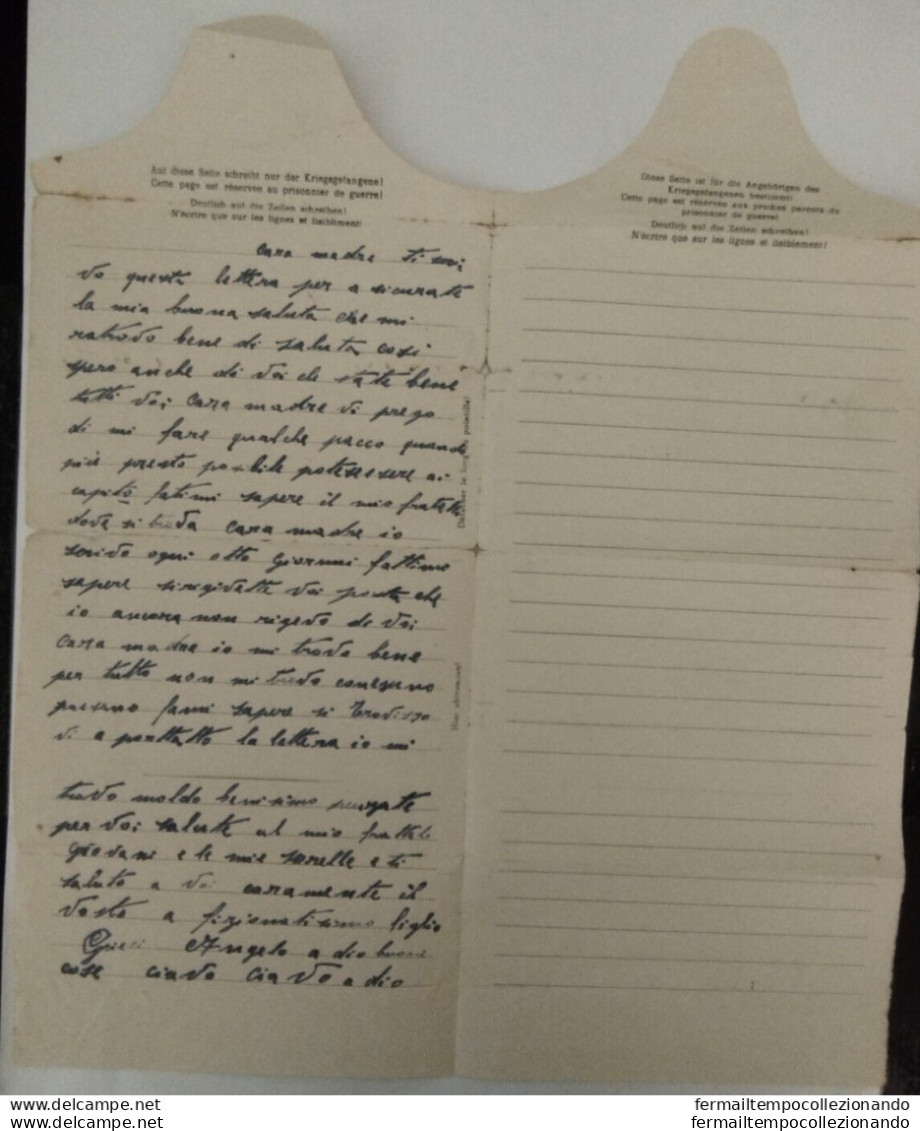 Auf diese Seite schreibt nur der Kriegsgefangene!
Cette page est réservée au prisonnier de guerre!
Deutlich auf die Zeilen schreiben!
N'écrire que sur les lignes et lisiblement!
cara madre ti scri
vo questa lettera per a sicurate
la mia buona saluta che mi
ratrovo bene di saluta cosi
spero anche di voi che state bene
tutti voi cara madre vi prego
di mi fare qualche pacco quando
più presto posibile potesessere ai
capito fatimi sapere il mio fratello
dove si trova cara madre io
scrivo ogni otto giorni fattime
sapere si rigidette voi posta che
io ancora non rigevo di voi
cara madre io mi trovo bene
per tutto non mi trovo con
fami sapere si
vi a porttatto la lettera io mi
trovo moldo benisimo
per voi salute al mio fratelo
giovani e le mie sorelle e ti
saluto a voi caramente il
vosto a fizionatisimo figlio
Angelo a dio buone
cose ciavo ciavo a dio
Hier abtrennen!
Diese Seite ist für die Angehörigen des
Kriegsgefangenen bestimmt!
Cette page est réservée aux proches parents du
prisonnier de guerre!
Deutlich auf die Zeilen schreiben!
N'écrire que sur les lignes et lisiblement!
fermailtempocollezionando
fermailtempocollezionando
fermailtempocollezionando
fermailtempocollezionando